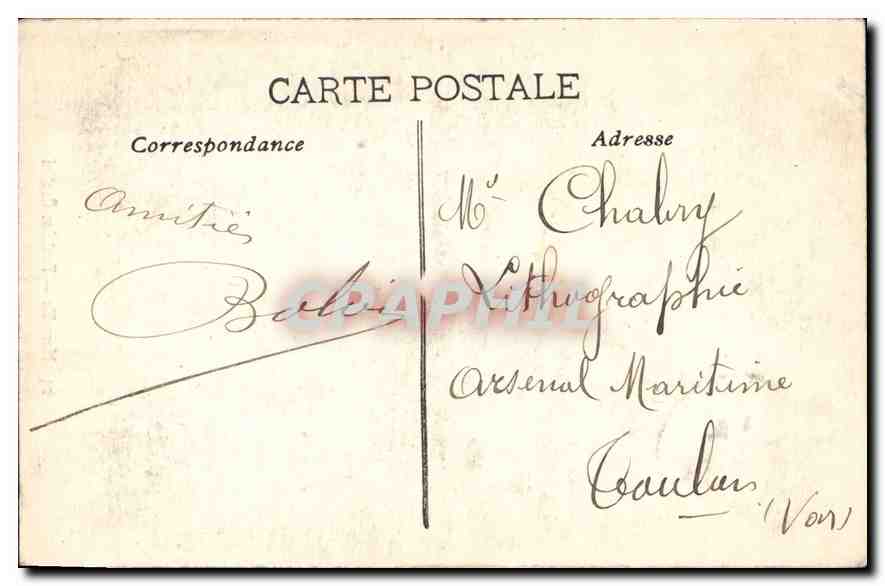 CARTE POSTALE
Correspondance
Adresse
Amitiés
Mr Chabry
Lithographie
Arsenal Maritime
Toulon
(Var)
CPAPHIL